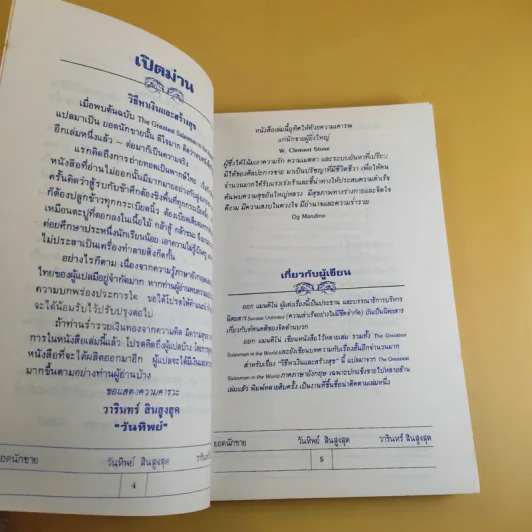 เปิดม่าน
วิธีหาเงินและสร้างสุข
เมื่อพบต้นฉบับ The Greatest Salesman in the
แปลมาเป็น ยอดนักขายนั้น ดีใจมาก คิดว่าพบหนังสือ
อีกเล่มหนึ่งแล้ว - ต่อมาก็เป็นความจริง
แรกคิดถึงการถ่ายทอดเป็นพากษ์ไทย
หนังสือที่อ่านไม่ออกนั้นมีมากมายอย่างคัมภีร์
ครั้นคิดว่าสู้รบกับข้าศึกต้องชิงพื้นที่ทุกกระเบียดนิ้ว
ก็ต้องปลูกข้าวทุกกระเบียดนิ้ว ต้องเบียดเสียด
เหมือนตะปูที่ตอกลงในเนื้อไม้ กล้าสู้ กล้าชนะ
ต่อยศึกษาประหนึ่งนักเรียนน้อย เอาความไม่รู้
ไม่ประสาเป็นเครื่องทำลายสิ่งกีดกั้น
อย่างไรก็ตาม เนื่องจากความรู้ภาษาอังกฤษ
ไทยของผู้แปลมีอยู่จำกัดมาก หากท่านผู้อ่านพบ
ความบกพร่องประการใด ขอได้โปรดให้คำแนะนำ
จะได้น้อมรับไว้ปรับปรุงต่อไป
ถ้าท่านร่ำรวยเงินทองจากความคิด มีความสุข
การในหนังสือเล่มนี้แล้ว โปรดคิดถึงผู้แปลบ้าง
หนังสือที่จะได้ผลิตออกมาอีก ผู้แปลจะได้มี
มากขึ้นตามอย่างท่านผู้อ่านบ้าง
ขอแสดงความคารวะ
วารินทร์ สินสูงสุด
"วันทิพย์"
ยอดนักขาย วันทิพย์ สินสูงสุด วารินทร์ สิน
4
หนังสือเล่มนี้อุทิศให้ด้วยความเคารพ
แก่นักขายผู้ยิ่งใหญ่
W. Clement Stone
ผู้ซึ่งได้โน้มเอาความรัก ความเมตตา และระบบอันหาที่เปรียบ
มิได้ของศิลปะการขาย มาเป็นปรัชญาที่มีชีวิตชีวา เพื่อให้คน
จำนวนมากได้รับแรงเร่งเร้าและชี้นำทางให้ประสบความสำเร็จ
ค้นพบความสุขอันใหญ่หลวง มีสุขภาพทางร่างกายและจิตใจ
ดีงาม มีความสงบในดวงใจ มีอำนาจและความร่ำรวย
Og Mandino
เกี่ยวกับผู้เขียน
ออก แมนดิโน่ ผู้แต่งเรื่องนี้เป็นประธาน และบรรณาธิการบริหาร
นิตยสาร Success Unlimited (ความสำเร็จอย่างไม่มีขีดจำกัด) อันเป็นนิตยสาร
เกี่ยวกับทัศนคติของจิตด้านบวก
ออก แมนดิโน่ เขียนหนังสือไว้หลายเล่ม รวมทั้ง The Greatest
Salesman in the World และยังเขียนบทความและเรื่องสั้นอีกจำนวนมาก
สำหรับเรื่อง "วิธีหาเงินและสร้างสุข" นี้ แปลมาจาก The Greatest
Salesman in the World ภาคภาษาอังกฤษ เฉพาะปกแข็งขายไปหลายล้าน
เล่มแล้ว พิมพ์หลายสิบครั้ง เป็นงานที่ขึ้นชื่อน่าติดตามเล่มหนึ่ง
ยอดนักขาย วันทิพย์ สินสูงสุด วารินทร์ สินสูงสุด
5